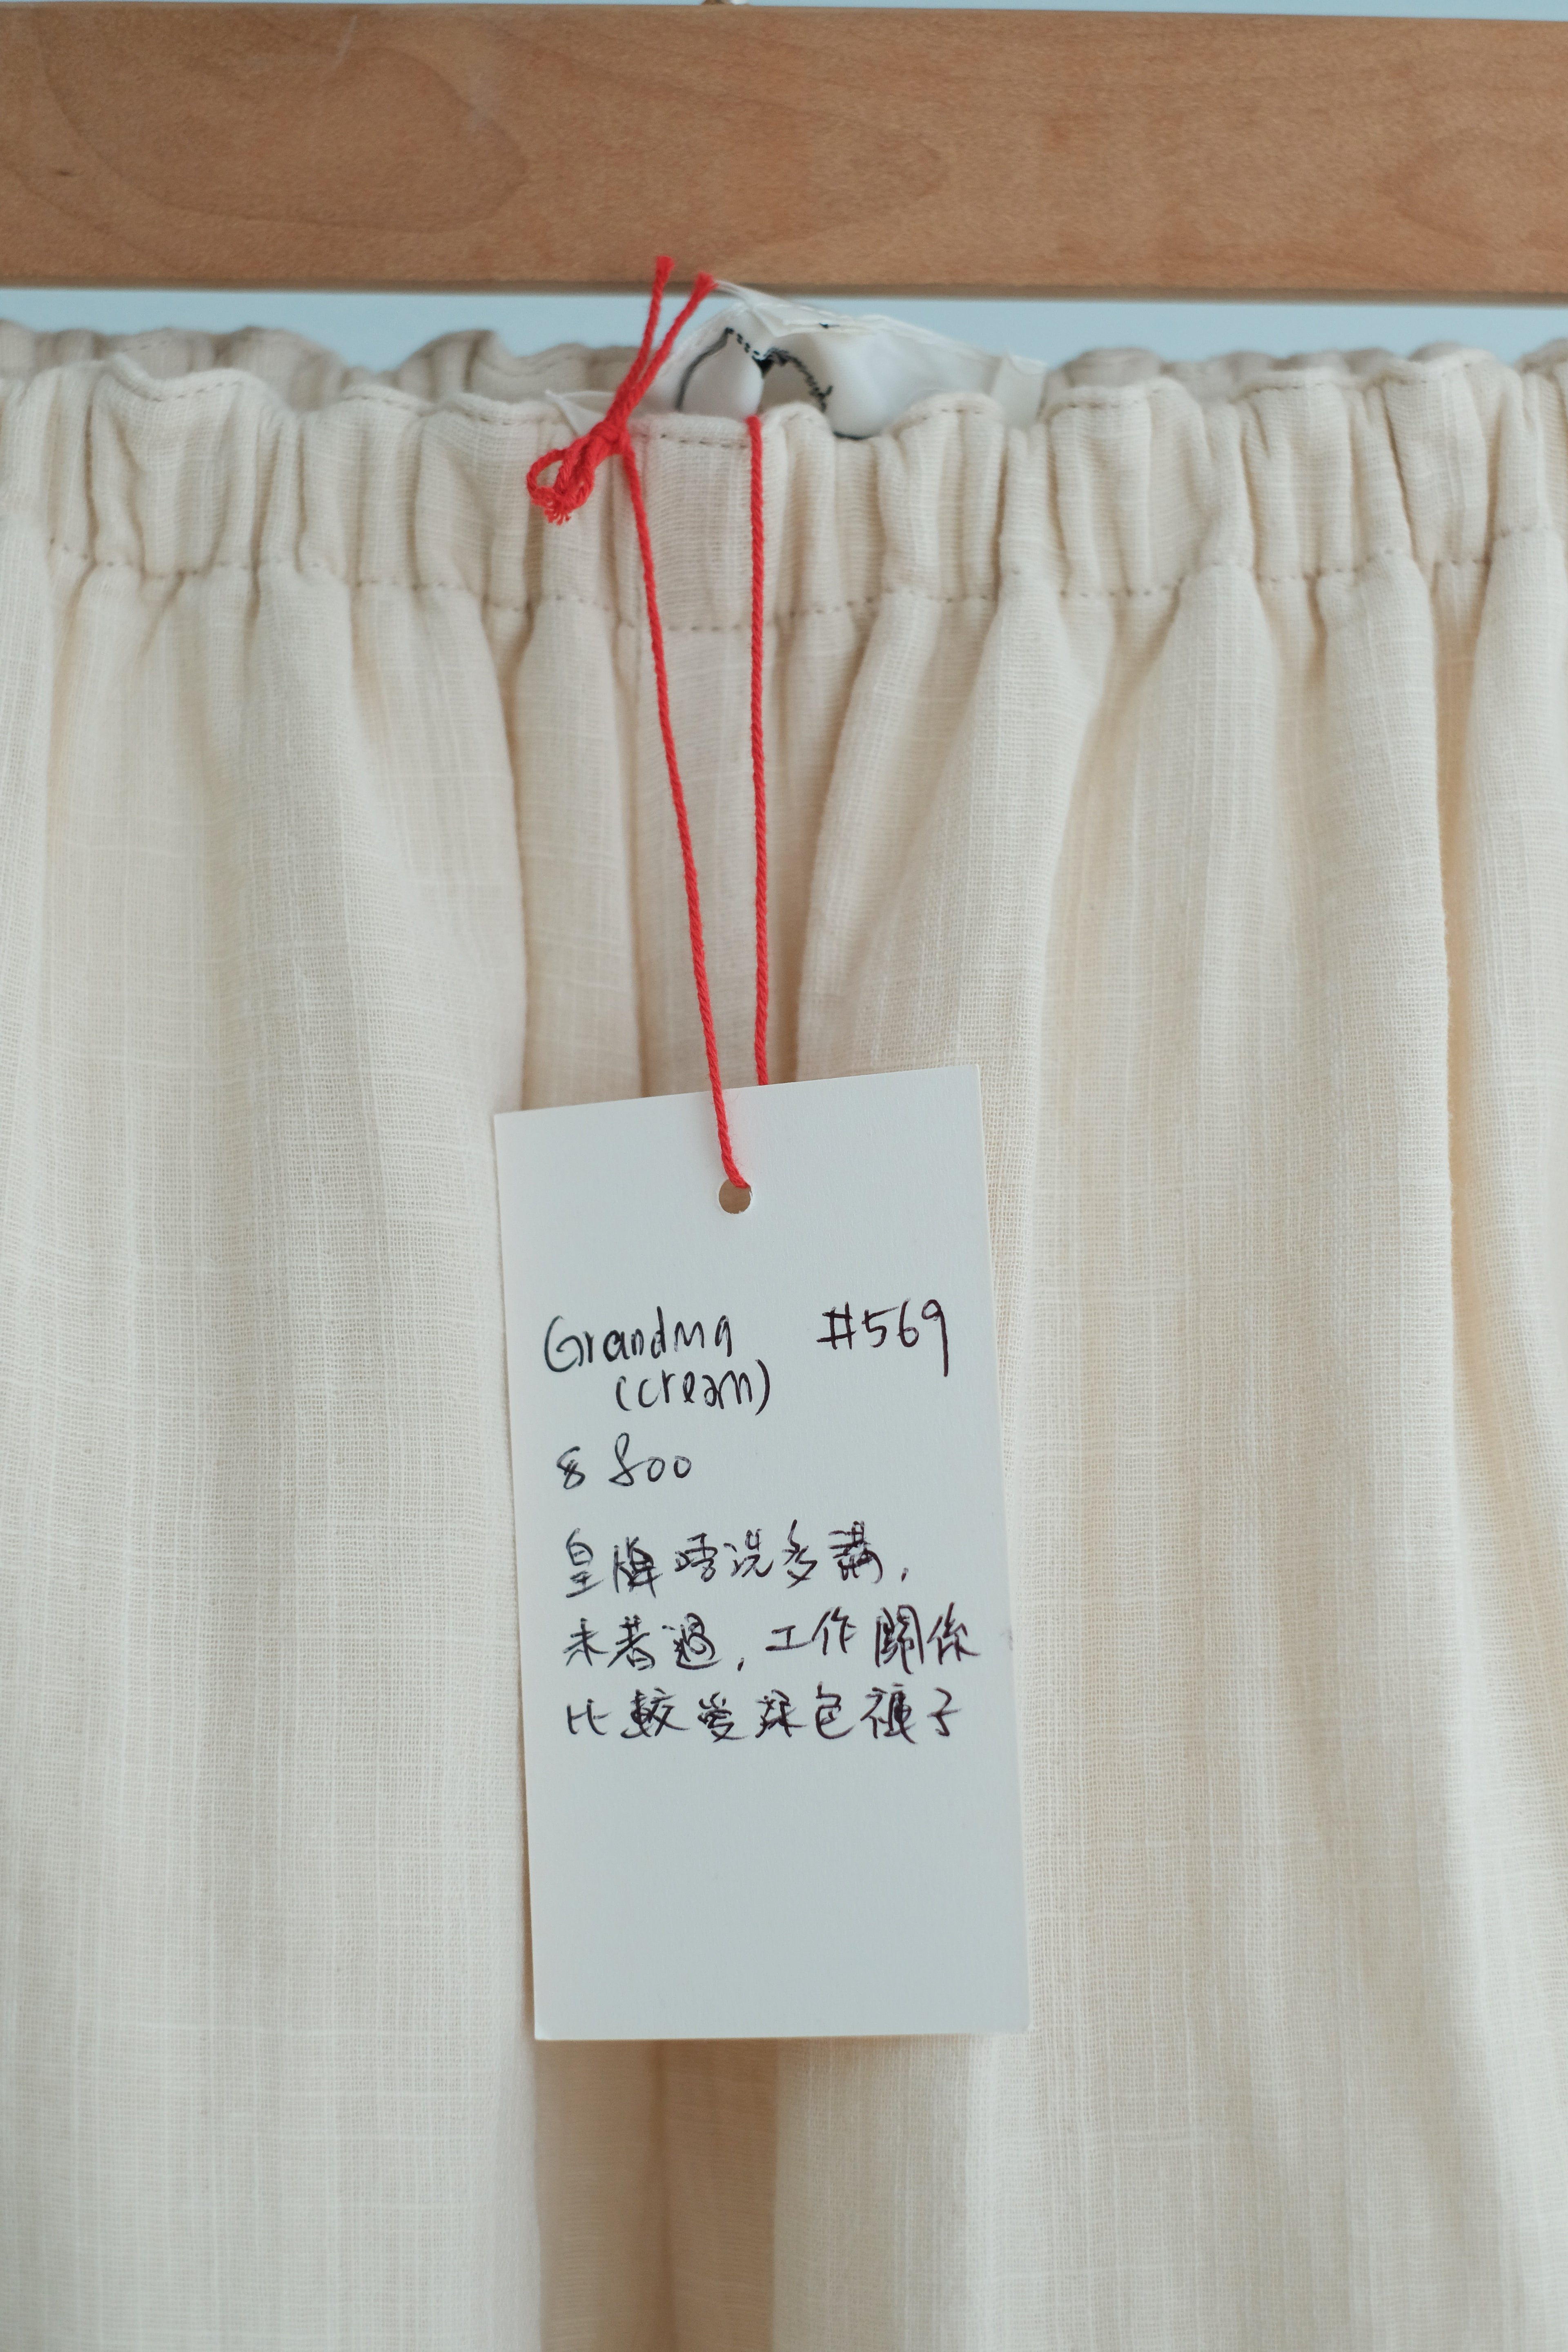 Grandma #569
(cream)
$ 800
皇牌唔洗多講,
未着過, 工作關係
比較愛深色褲子